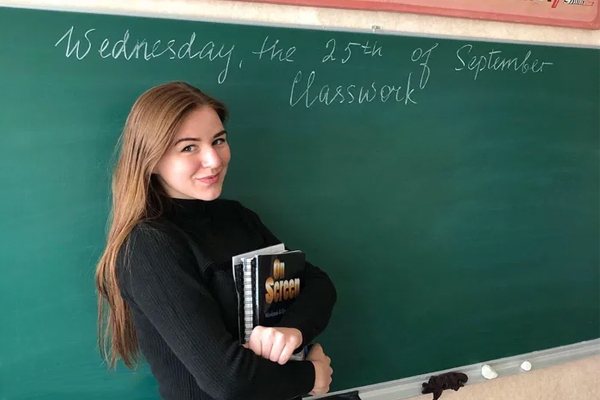 Wednesday, the 25th of September
Classwork
On
Screen